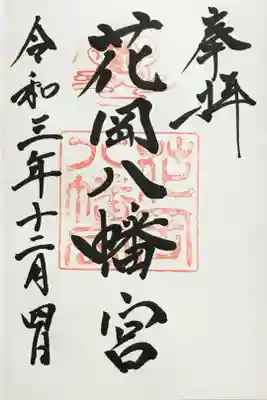 奉拝
花岡八幡宮
令和三年十二月四日